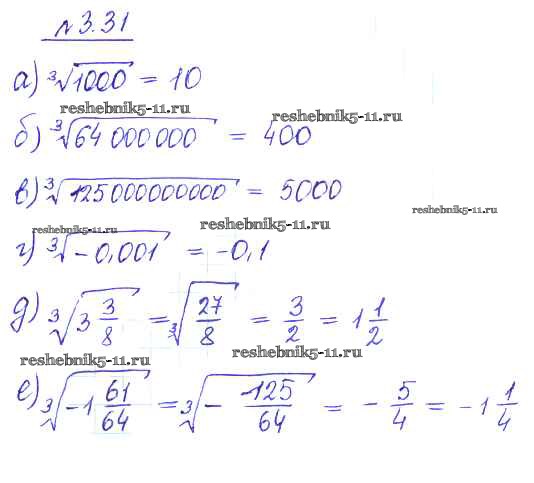 №3.31
а) ∛1000 = 10
reshebnik5-11.ru reshebnik5-11.ru
б) ∛64 000 000 = 400
в) ∛125000000000 = 5000
reshebnik5-11.ru
reshebnik5-11.ru reshebnik5-11.ru
г) ∛-0,001 = -0,1
д) ∛(3 3/8) = ∛(27/8) = 3/2 = 1 1/2
reshebnik5-11.ru reshebnik5-11.ru
е) ∛(-1 61/64) = ∛(- 125/64) = - 5/4 = -1 1/4